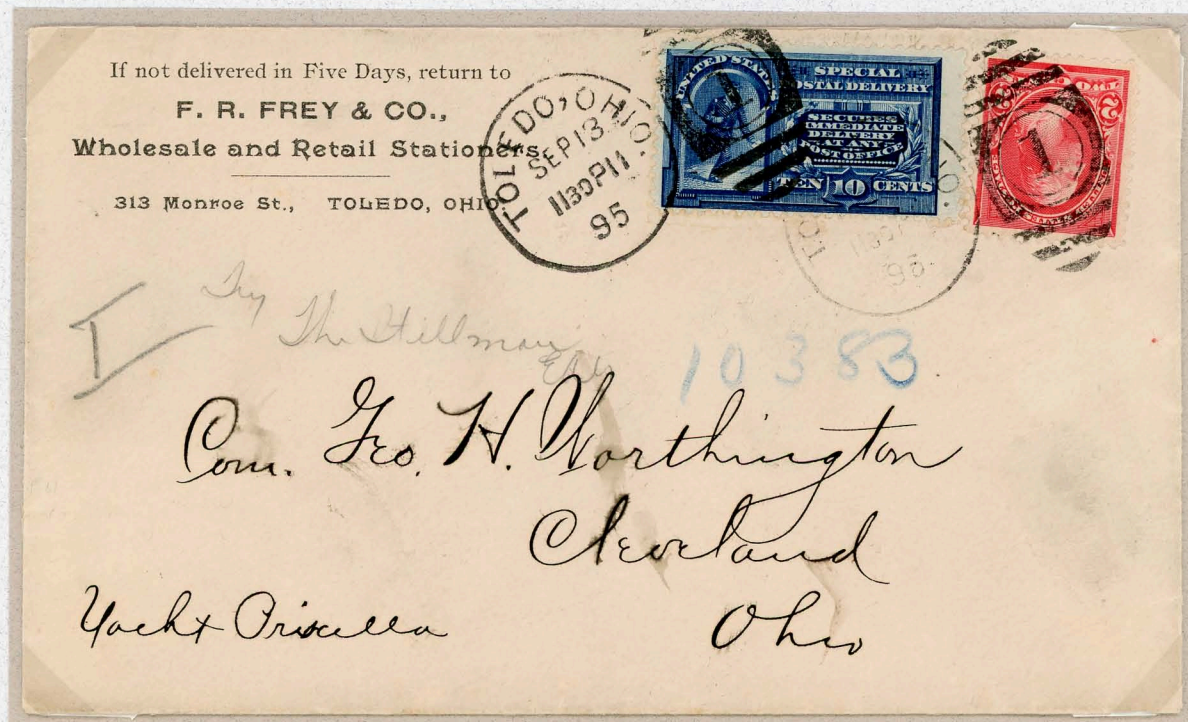 If not delivered in Five Days, return to
F. R. FREY & CO.,
Wholesale and Retail Stationers,
313 Monroe St., TOLEDO, OHIO.
TOLEDO, OHIO.
SEP 13
1130P11
95
1
UNITED STATES
SPECIAL
POSTAL DELIVERY
SECURES
IMMEDIATE
DELIVERY
AT ANY
POST OFFICE
TEN 10 CENTS
TWO
2
1
95
Try
The Stillman
10383
Com. Geo. H. Worthington
Cleveland
Ohio
Yacht Priscilla